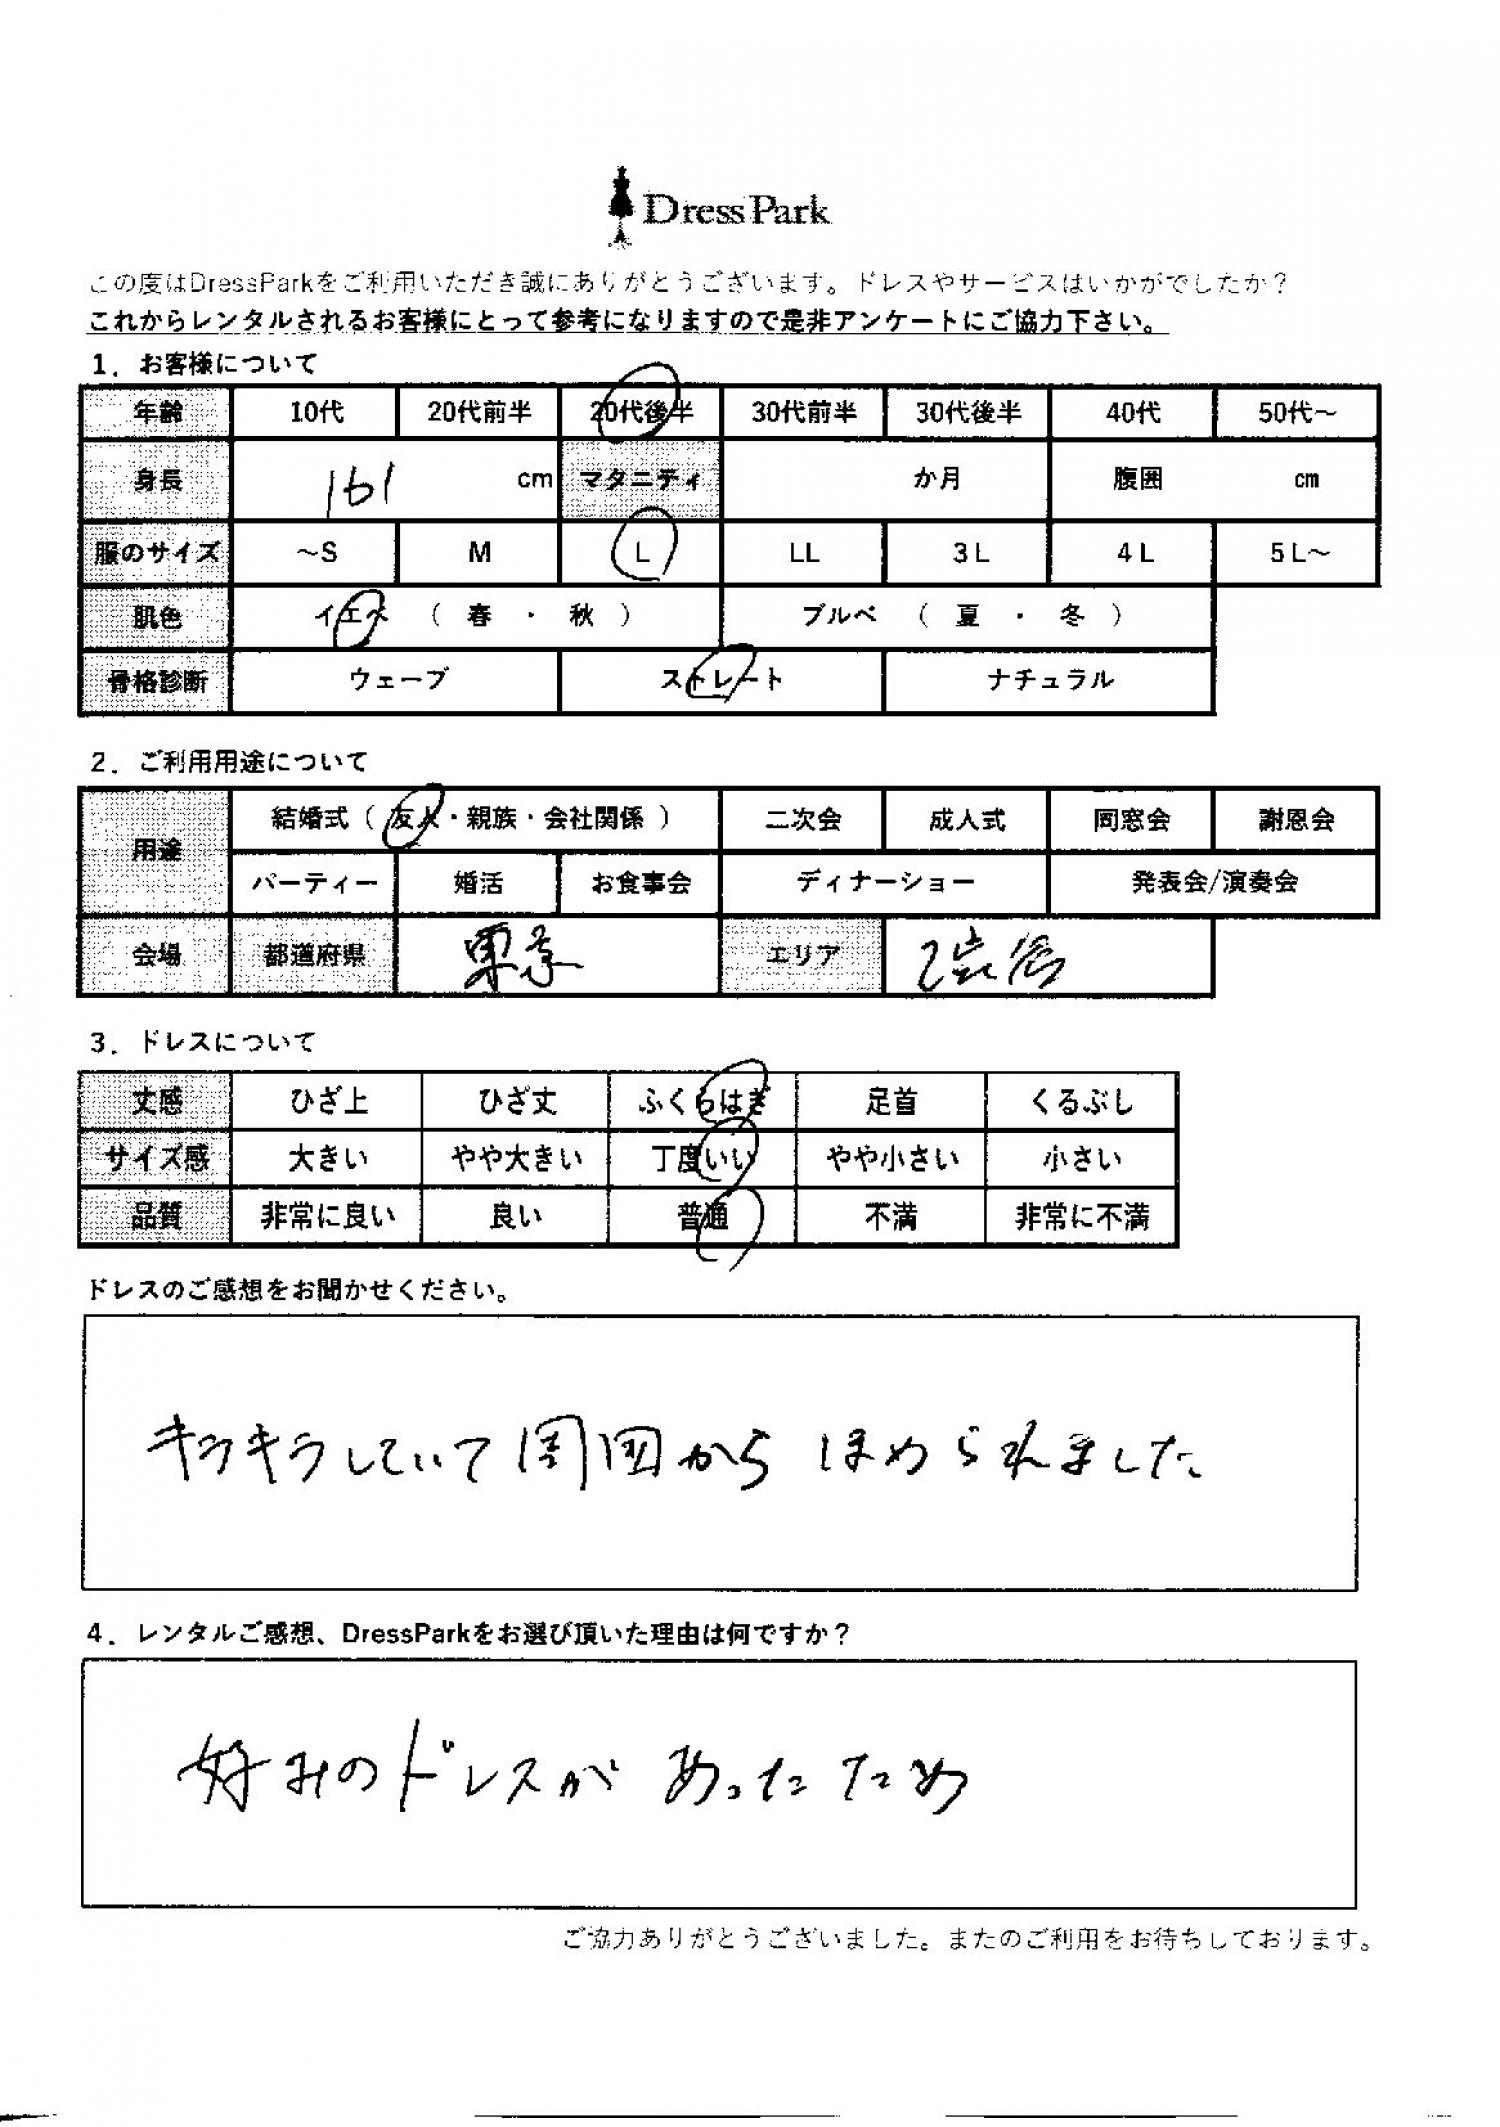 DressPark
この度はDressParkをご利用いただき誠にありがとうございます。ドレスやサービスはいかがでしたか？
これからレンタルされるお客様にとって参考になりますので是非アンケートにご協力下さい。
1．お客様について
年齢 10代 20代前半 20代後半 30代前半 30代後半 40代 50代～
身長 161 cm マタニティ か月 腹囲 cm
服のサイズ ～S M L LL 3L 4L 5L～
肌色 イエベ （ 春 ・ 秋 ） ブルベ （ 夏 ・ 冬 ）
骨格診断 ウェーブ ストレート ナチュラル
2．ご利用用途について
用途 結婚式（ 友人・親族・会社関係 ） 二次会 成人式 同窓会 謝恩会
パーティー 婚活 お食事会 ディナーショー 発表会/演奏会
会場 都道府県 東京 エリア 渋谷
3．ドレスについて
丈感 ひざ上 ひざ丈 ふくらはぎ 足首 くるぶし
サイズ感 大きい やや大きい 丁度いい やや小さい 小さい
品質 非常に良い 良い 普通 不満 非常に不満
ドレスのご感想をお聞かせください。
キラキラしていて周囲から ほめられました
4．レンタルご感想、DressParkをお選び頂いた理由は何ですか？
好みのドレスが あったため
ご協力ありがとうございました。またのご利用をお待ちしております。